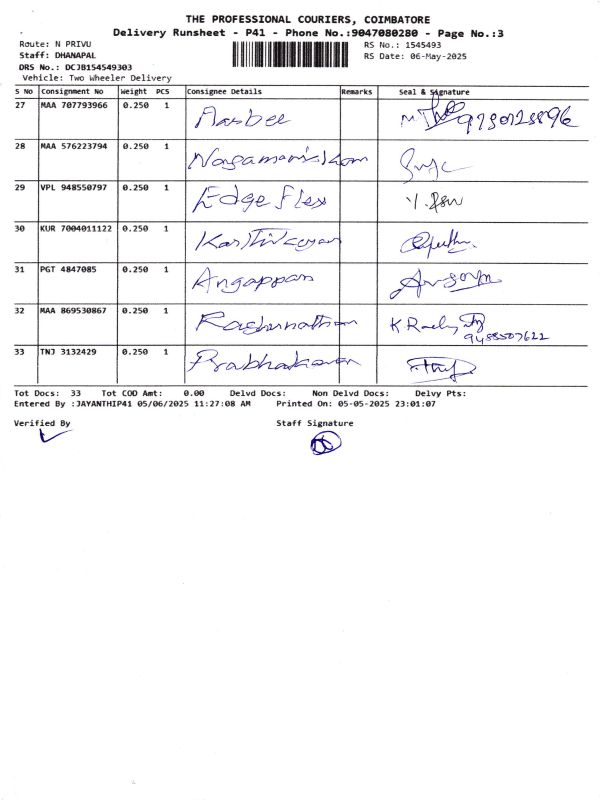 THE PROFESSIONAL COURIERS, COIMBATORE
Delivery Runsheet - P41 - Phone No.:9047080280 - Page No.:3
Route: N PRIVU RS No.: 1545493
Staff: DHANAPAL RS Date: 06-May-2025
DRS No.: DCJB154549303
Vehicle: Two Wheeler Delivery
S No Consignment No Weight PCS Consignee Details Remarks Seal & Signature
27 MAA 707793966 0.250 1 Aarbee
28 MAA 576223794 0.250 1
29 VPL 948550797 0.250 1 Edge flex
30 KUR 7004011122 0.250 1 Karthikeyan
31 PGT 4847085 0.250 1 Angappan
32 MAA 869530867 0.250 1 Raghunathan 9488507622
33 TNJ 3132429 0.250 1 Prabhakaran
Tot Docs: 33 Tot COD Amt: 0.00 Delvd Docs: Non Delvd Docs: Delvy Pts:
Entered By :JAYANTHIP41 05/06/2025 11:27:08 AM Printed On: 05-05-2025 23:01:07
Verified By Staff Signature